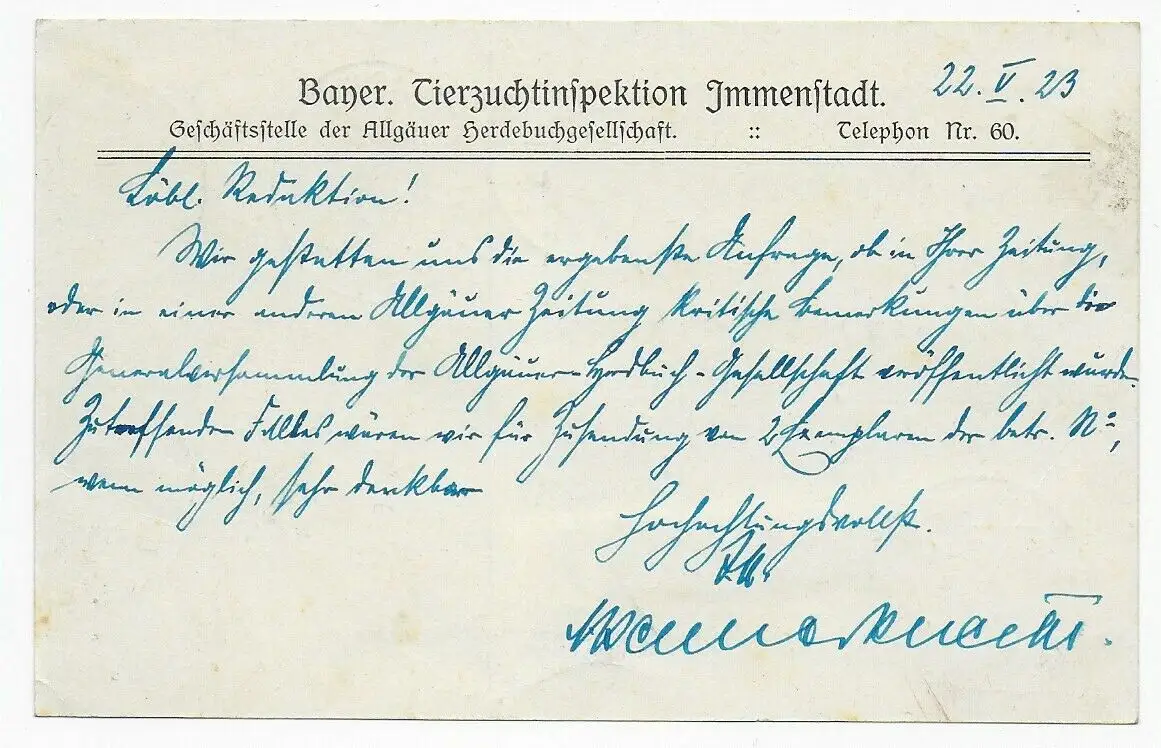 Bayer. Tierzuchtinspektion Immenstadt. 22. V. 23
Geschäftsstelle der Allgäuer Herdebuchgesellschaft. :: Telephon Nr. 60.
Löbl. Redaktion!
Wir gestatten uns die ergebenste Anfrage, ob in Ihrer Zeitung,
oder in einer anderen Allgäuer Zeitung kritische Bemerkungen über die
Generalversammlung der Allgäuer-Herdbuch-Gesellschaft veröffentlicht wurde.
Zutreffenden Falles wären wir für Zusendung von 2 Exemplaren der betr. No,
wenn möglich, sehr dankbar
Hochachtungsvollst.